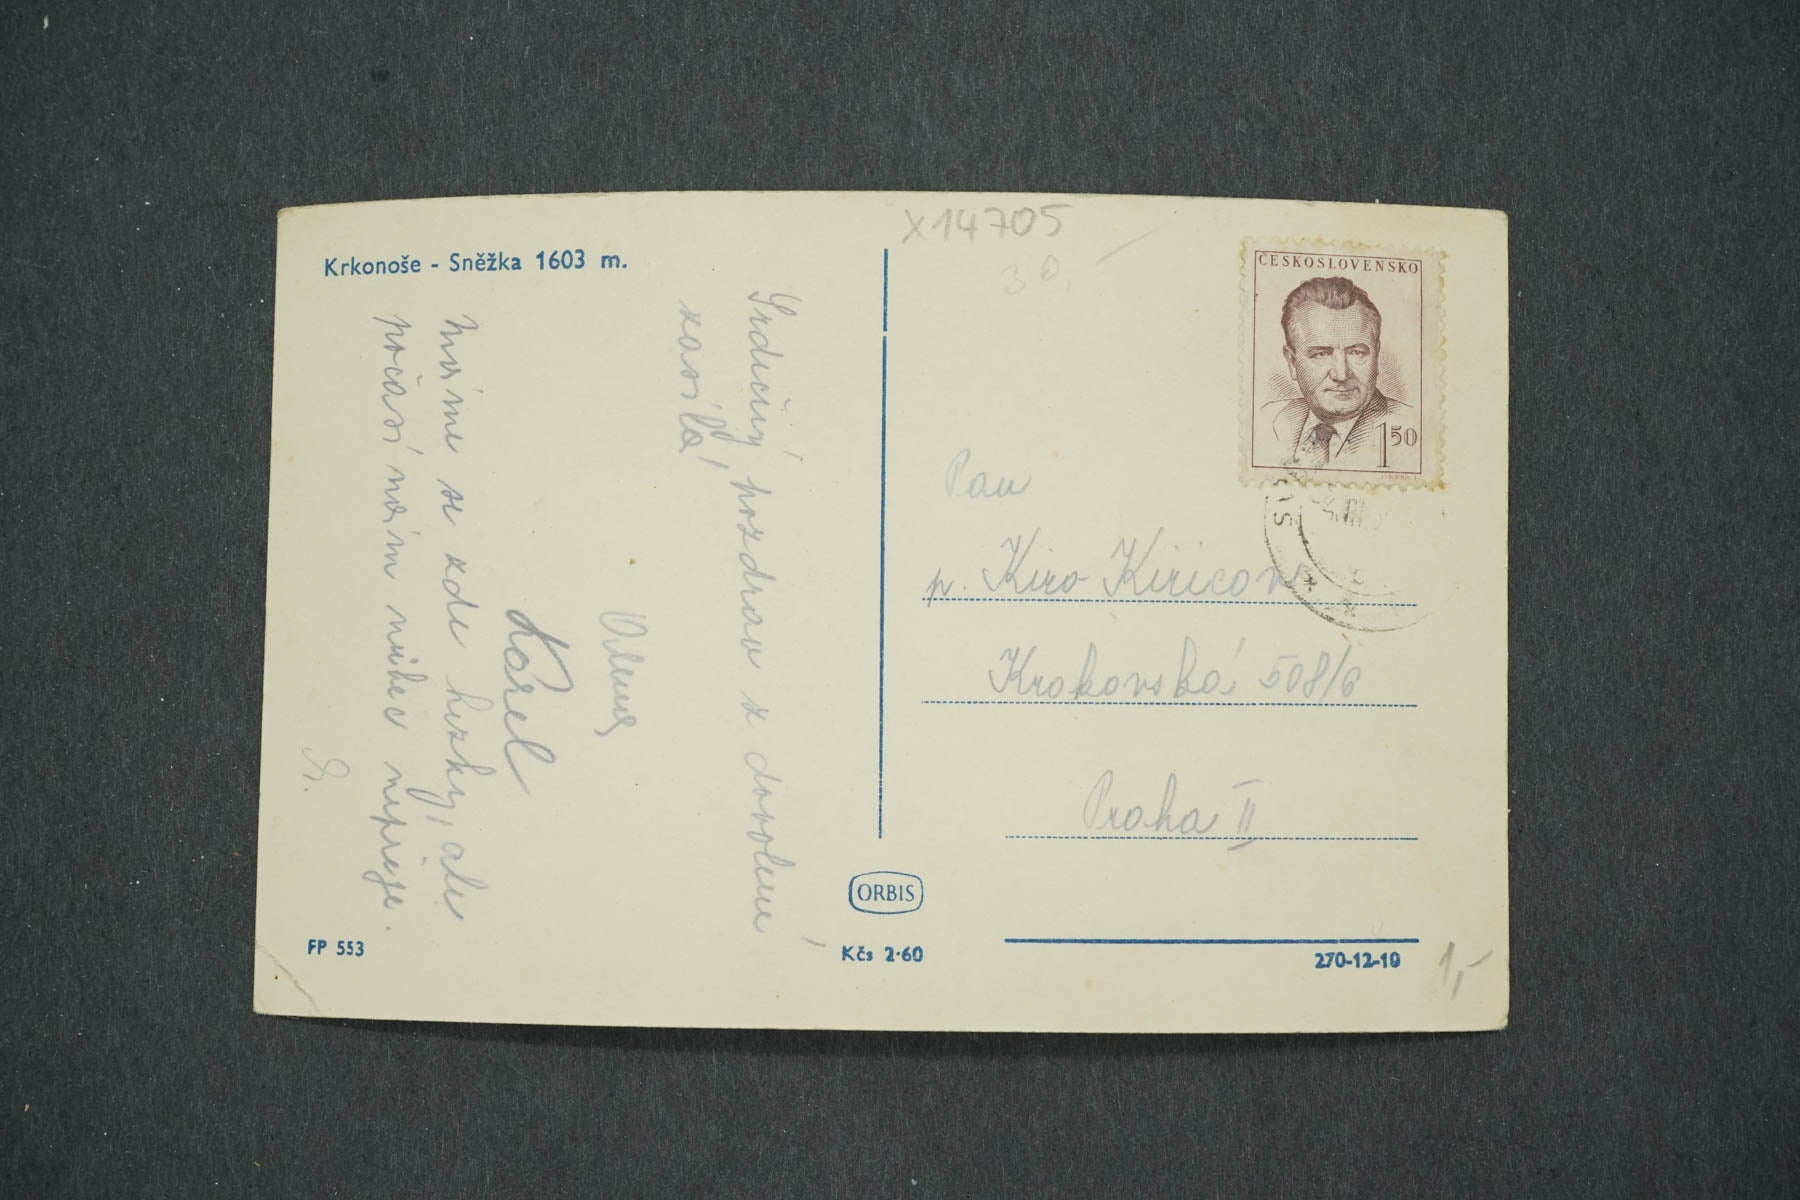 Krkonoše - Sněžka 1603 m.
Srdečný pozdrav z dovolené
zasílá
Karel
Máme se zde hezky, ale
počasí nám vůbec nepřeje.
FP 553
x14705
30,-
ČESKOSLOVENSKO
1 50
Pan
p. Kiro Kiricov
Krakovská 508/6
Praha II
ORBIS
Kčs 2·60
270-12-10
1,-